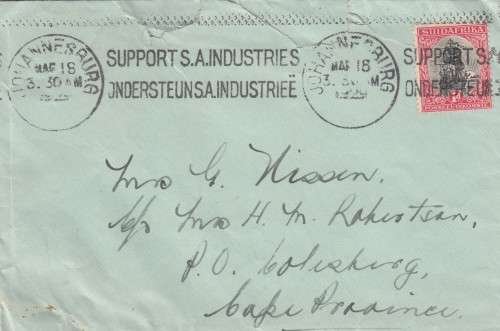 JOHANNESBURG
MAR 18
3. 30 AM
SUPPORT S.A. INDUSTRIES
ONDERSTEUN S.A. INDUSTRIEË
JOHANNESBURG
MAR 18
3. 30 AM
SUPPORT S.
ONDERSTEUN S
SUIDAFRIKA
Mrs G. Nissen.
c/o Mrs H. M. Robertson,
P.O. Colesberg,
Cape Province.